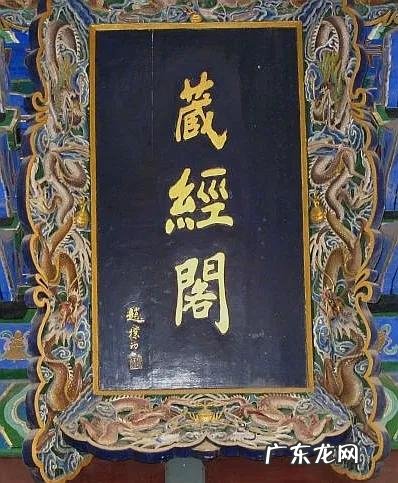 藏經閣
趙樸初
广东龙网